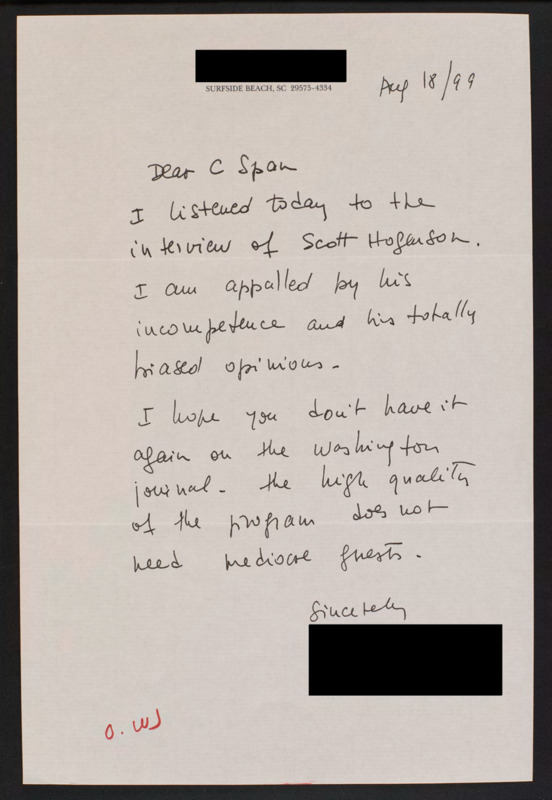 SURFSIDE BEACH, SC 29575-4334
Aug 18/99
Dear C Span
I listened today to the
interview of Scott Hogenson.
I am appalled by his
incompetence and his totally
biased opinions.
I hope you don't have it
again on the Washington
journal. the high quality
of the program does not
need mediocre guests.
Sincerely
O. WJ